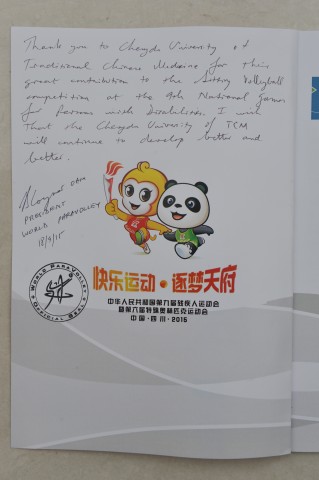 Thank you to Chengdu University of
Traditional Chinese Medicine for their
great contribution to the Sitting Volleyball
competition at the 9th National Games
for Persons with Disabilities. I wish
that the Chengdu University of TCM
will continue to develop better and
better.
PRESIDENT
WORLD PARAVOLLEY
18/9/15
快乐运动·逐梦天府
中华人民共和国第九届残疾人运动会
暨第六届特殊奥林匹克运动会
中国·四川·2015
WORLD PARAVOLLEY
OFFICIAL